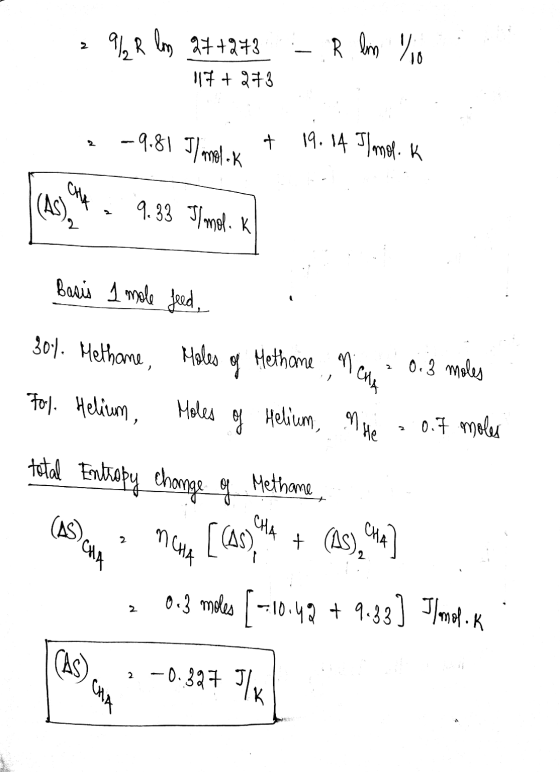 = 9/2 R ln (27+273)/(117 + 273) - R ln 1/10
= -9.81 J/mol.K + 19.14 J/mol.K
(ΔS)₂^CH₄ = 9.33 J/mol.K
Basis 1 mole feed,
30%. Methane, Moles of Methane, n_CH₄ = 0.3 moles
70%. Helium, Moles of Helium, n_He = 0.7 moles
total Entropy change of Methane,
(ΔS)_CH₄ = n_CH₄ [(ΔS)₁^CH₄ + (ΔS)₂^CH₄]
= 0.3 moles [-10.42 + 9.33] J/mol.K
(ΔS)_CH₄ = -0.327 J/K